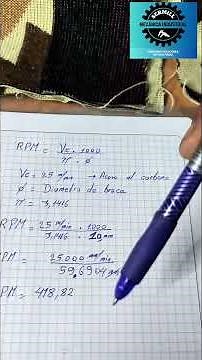 MECÁNICA INDUSTRIAL
RPM = Vc . 1000
π . ø
Vc = 25 m/min → Acero al carbono
ø = Diametro de broca
π = 3,1416
RPM = 25 m/min . 1000
3,1416 . 19 mm
PM = 25.000 m/min
59,6904
PM = 418,82